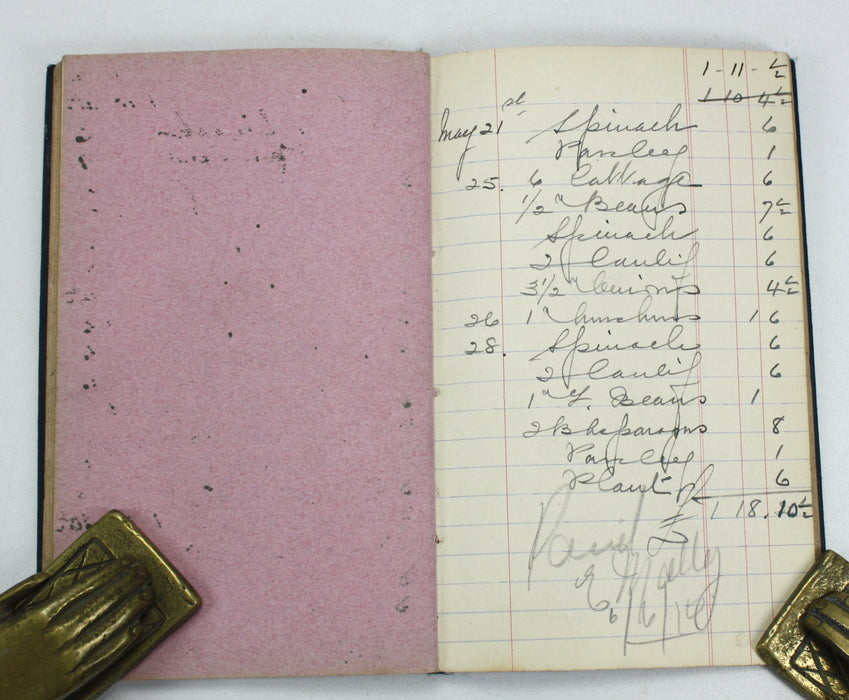 1 - 11 - ½
1 10 4½
May 21st Spinach 6
Parsley 1
25. 6 Cabbage 6
1/2 " Beans 7½
Spinach 6
2 Caulif 6
3 1/2 " Onions 4½
26 1 " Mushrms 1 6
28. Spinach 6
2 Caulif 6
1 " F. Beans 1
2 B Asparagus 8
Parsley 1
Plant 6
£ 1 18. 10½
Paid
6/6/16